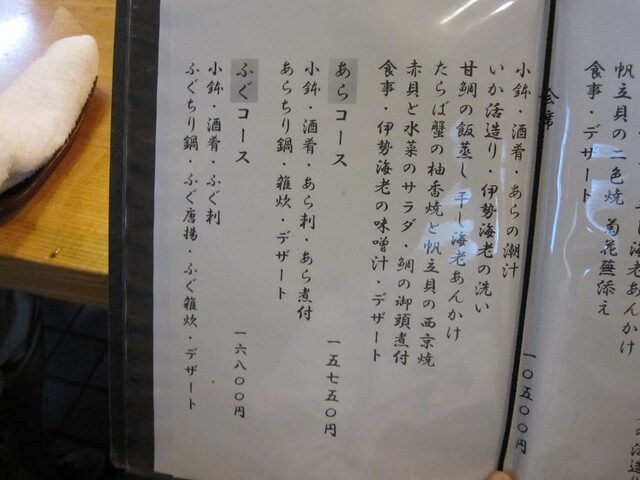 帆立貝の二色焼 菊花蕪添え
食事・デザート
会席
一〇五〇〇円
小鉢・酒肴・あらの潮汁
いか活造り・伊勢海老の洗い
甘鯛の飯蒸し 干し海老あんかけ
たらば蟹の柚香焼と帆立貝の西京焼
赤貝と水菜のサラダ・鯛の御頭煮付
食事・伊勢海老の味噌汁・デザート
あらコース
一五七五〇円
小鉢・酒肴・あら刺・あら煮付
あらちり鍋・雑炊・デザート
ふぐコース
一六八〇〇円
小鉢・酒肴・ふぐ刺
ふぐちり鍋・ふぐ唐揚・ふぐ雑炊・デザート